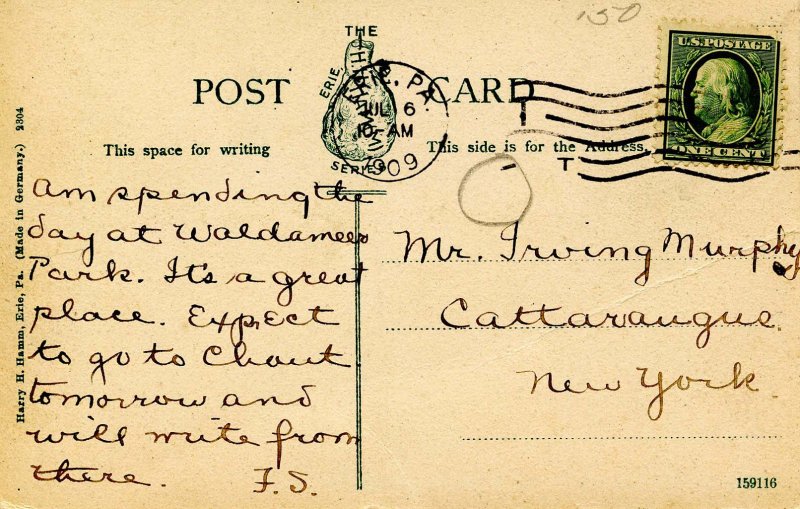 150
THE
ERIE, HAMM HAM
SERIES
POST CARD
ERIE, PA.
JUL 6
10 AM
1909
U.S. POSTAGE
ONE CENT
This space for writing
This side is for the Address.
Am spending the
day at Waldameer
Park. It's a great
place. Expect
to go to Chaut
tomorrow and
will write from
there. F.S.
Mr. Irving Murphy
Cattaraugus
New York.
Harry H. Hamm, Erie, Pa. (Made in Germany.) 2304
159116